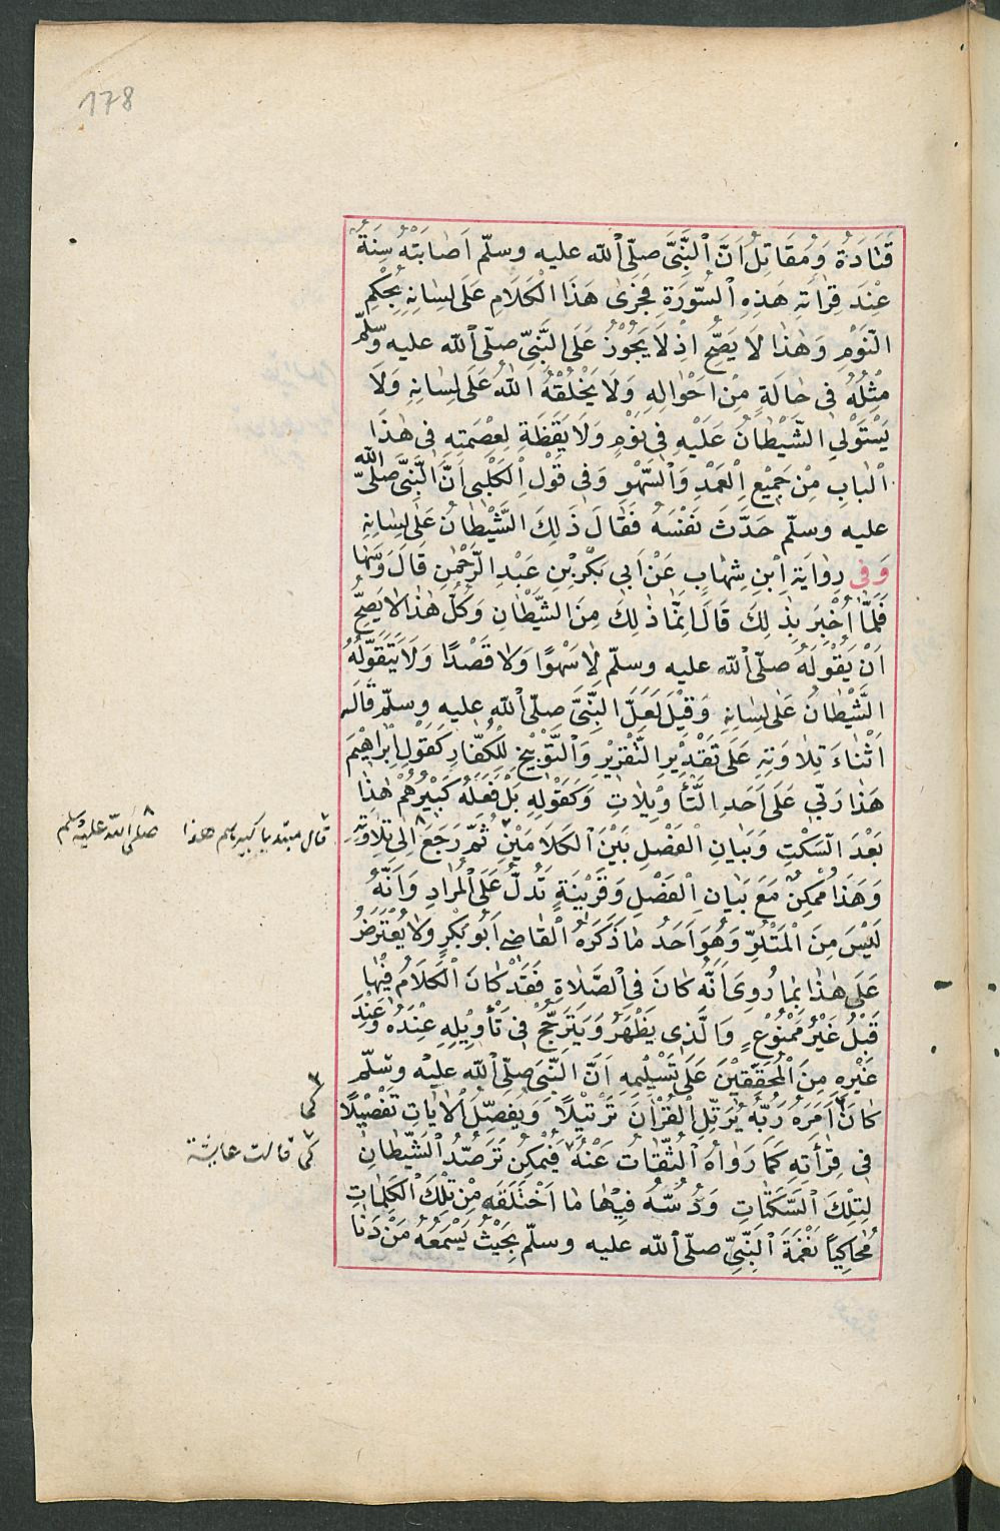 178
قَتَادَةُ وَمُقَاتِلُ اَنَّ النَّبِيَّ صلّى الله عليه وسلّم اَصَابَتْهُ سِنَةٌ
عِنْدَ قِرَاءَتِهِ هَذِهِ السُّورَةِ فَجَرٰى هَذَا الْكَلَامِ عَلَى لِسَانِهِ بِحُكْمِ
النَّوْمِ وَهٰذَا لَا يَصِحُّ اِذْ لَا يَجُوْزُ عَلَى النَّبِيِّ صلّى الله عليه وسلّم
مِثْلُهُ فِى حَالَةٍ مِنْ اَحْوَالِهِ وَلَا يَخْلُقُهُ اللهُ عَلَى لِسَانِهِ وَلَا
يَسْتَوْلِي الشَّيْطَانُ عَلَيْهِ فِى نَوْمٍ وَلَا يَقَظَةٍ لِعِصْمَتِهِ فِى هٰذَا
الْبَابِ مِنْ جَمِيْعِ الْعَمْدِ وَالسَّهْوِ وَفِى قَوْلِ الْكَلْبِى اَنَّ النَّبِيَّ صلّى الله
عليه وسلّم حَدَّثَ نَفْسَهُ فَقَالَ ذَلِكَ الشَّيْطَانُ عَلَى لِسَانِهِ
وَفِى رِوَايَةِ ابْنِ شِهَابٍ عَنْ اَبِى بَكْرِ بْنِ عَبْدِ الرَّحْمٰنِ قَالَ وَسَهَا
فَلَمَّا اُخْبِرَ بِذٰلِكَ قَالَ اِنَّمَا ذٰلِكَ مِنَ الشَّيْطَانِ وَكُلُّ هٰذَا لَا يَصِحُّ
اَنْ يَقُوْلَهُ صلّى الله عليه وسلّم لَا سَهْوًا وَلَا قَصْدًا وَلَا يَتَقَوَّلَهُ
الشَّيْطَانُ عَلَى لِسَانِهِ وَقِيْلَ لَعَلَّ النَّبِيَّ صلّى الله عليه وسلّم قَالَه
اَثْنَاءَ تِلَاوَتِهِ عَلَى تَقْدِيْرِ التَّقْرِيْرِ وَالتَّوْبِيْخِ لِلْكُفَّارِ كَقَوْلِ اِبْرَاهِيْمَ
هَذَا رَبِّى عَلَى اَحَدِ التَّأْوِيْلَاتِ وَكَقَوْلِهِ بَلْ فَعَلَهُ كَبِيْرُهُمْ هٰذَا
بَعْدَ السَّكْتِ وَبَيَانِ الْفَصْلِ بَيْنَ الْكَلَامَيْنِ ثُمَّ رَجَعَ اِلَى تِلَاوَتِهِ
قال مبتديا كبيرهم هذا
صلى الله عليه وسلم
وَهَذَا مُمْكِنٌ مَعَ بَيَانِ الْفَصْلِ وَقَرِيْنَةٍ تَدُلُّ عَلَى الْمُرَادِ وَاَنَّهُ
لَيْسَ مِنَ الْمَتْلُوِّ وَهُوَ اَحَدُ مَا ذَكَرَهُ الْقَاضِى اَبُو بَكْرٍ وَلَا يُعْتَرَضُ
عَلَى هٰذَا بِمَا رُوِىَ اَنَّهُ كَانَ فِى الصَّلَاةِ فَقَدْ كَانَ الْكَلَامُ فِيْهَا
قَبْلُ غَيْرُ مَمْنُوْعٍ وَالَّذِى يَظْهَرُ وَيَتَرَجَّحُ فِى تَأْوِيْلِهِ عِنْدَهُ وَعِنْدَ
غَيْرِهِ مِنَ الْمُحَقِّقِيْنَ عَلَى تَسْلِيْمِهِ اَنَّ النَّبِيَّ صلّى الله عليه وسلّم
كَانَ اَمَرَهُ رَبُّهُ يُرَتِّلُ الْقُرْاٰنَ تَرْتِيْلًا وَيُفَصِّلُ الْاٰيَاتِ تَفْصِيْلًا
كما
فِى قِرَاءَتِهِ كَمَا رَوَاهُ الثِّقَاتُ عَنْهُ فَيُمْكِنُ تَرَصُّدُ الشَّيْطَانِ
كما قالت عايشة
لِتِلْكَ السَّكَتَاتِ وَدُسُّهُ فِيْهَا مَا اخْتَلَقَهُ مِنْ تِلْكَ الْكَلِمَاتِ
مُحَاكِيًا نَغْمَةَ النَّبِيِّ صلّى الله عليه وسلّم بِحَيْثُ يَسْمَعُهُ مَنْ دَنَا